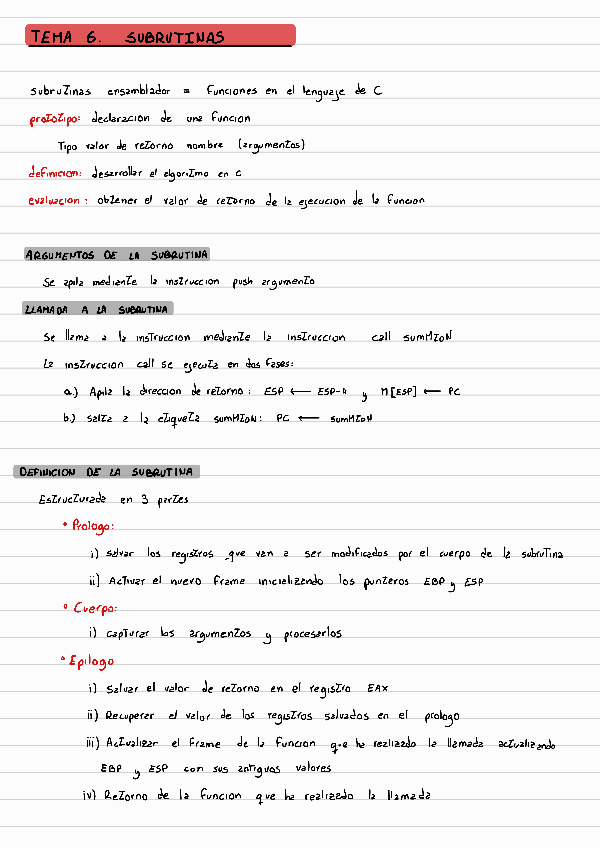 TEMA 6. SUBRUTINAS
subrutinas ensamblador = funciones en el lenguaje de C
prototipo: declaracion de una funcion
Tipo valor de retorno nombre (argumentos)
definicion: desarrollar el algoritmo en C
evaluacion: obtener el valor de retorno de la ejecucion de la funcion
ARGUMENTOS DE LA SUBRUTINA
Se apila mediante la instruccion push argumento
LLAMADA A LA SUBRUTINA
Se llama a la instruccion mediante la instruccion call sumMToN
La instruccion call se ejecuta en dos fases:
a.) Apila la direccion de retorno: ESP ← ESP-4 y M[ESP] ← PC
b.) salta a la etiqueta sumMToN: PC ← sumMToN
DEFINICION DE LA SUBRUTINA
Estructurada en 3 partes
• Prologo:
i) salvar los registros que van a ser modificados por el cuerpo de la subrutina
ii) Activar el nuevo frame inicializando los punteros EBP y ESP
• Cuerpo:
i) capturar los argumentos y procesarlos
• Epilogo
i) Salvar el valor de retorno en el registro EAX
ii) Recuperar el valor de los registros salvados en el prologo
iii) Actualizar el frame de la funcion que ha realizado la llamada actualizando
EBP y ESP con sus antiguos valores
iv) Retorno de la funcion que ha realizado la llamada